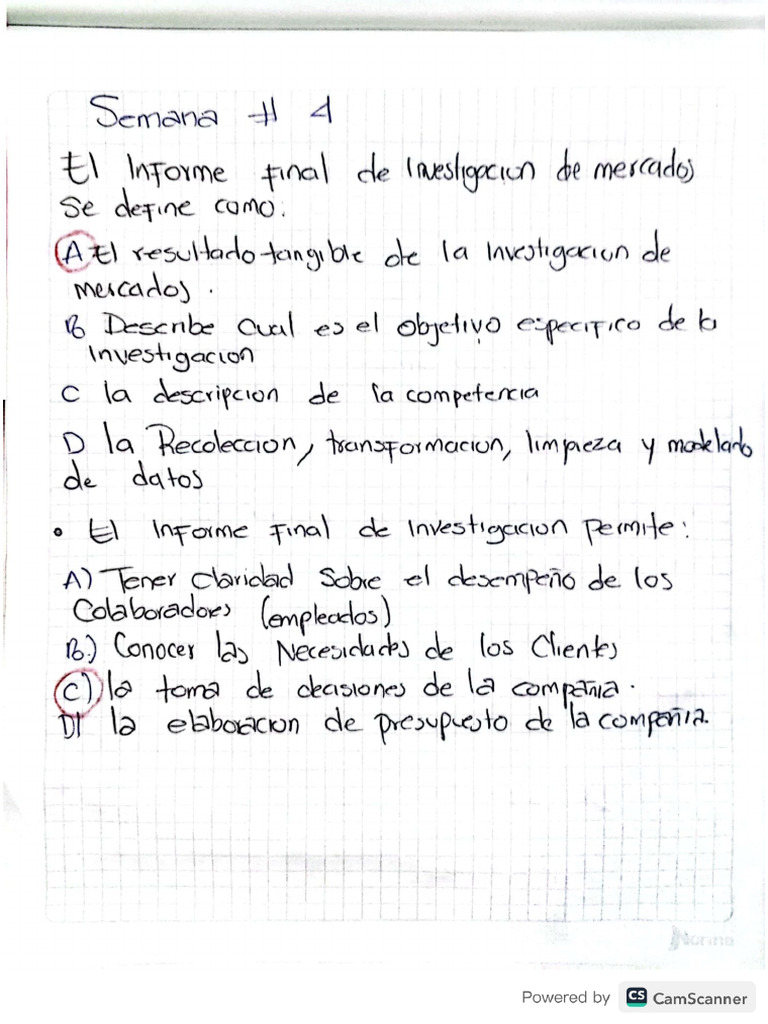 Semana # 4
El Informe final de investigacion de mercados
se define como:
A El resultado tangible de la investigacion de
mercados.
B Describe cual es el objetivo especifico de la
investigacion
C la descripcion de la competencia
D la Recoleccion, transformacion, limpieza y modelado
de datos
• El Informe Final de investigacion permite:
A) Tener claridad sobre el desempeño de los
Colaboradores (empleados)
B.) Conocer las Necesidades de los Clientes
C) la toma de decisiones de la compañia.
D) la elaboracion de presupuesto de la compañia.
Norma
Powered by CS CamScanner